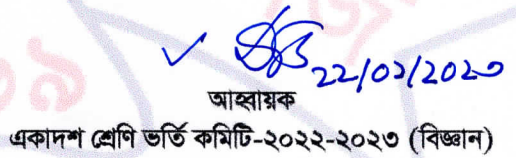 22/02/2023
আহ্বায়ক
একাদশ শ্রেণি ভর্তি কমিটি-২০২২-২০২৩ (বিজ্ঞান)